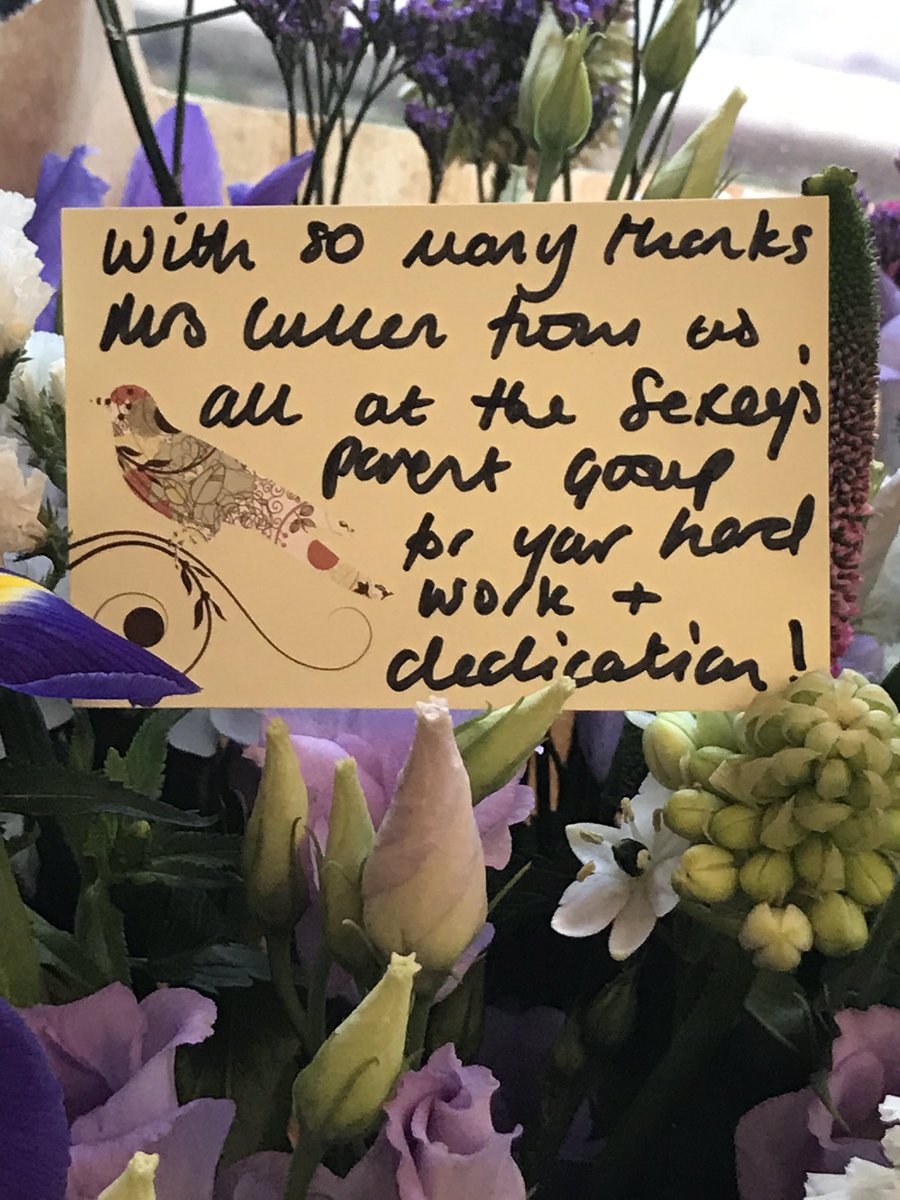 With so many thanks
Mrs Cullen from us
all at the Sexey's
parent group
for your hard
work +
dedication!